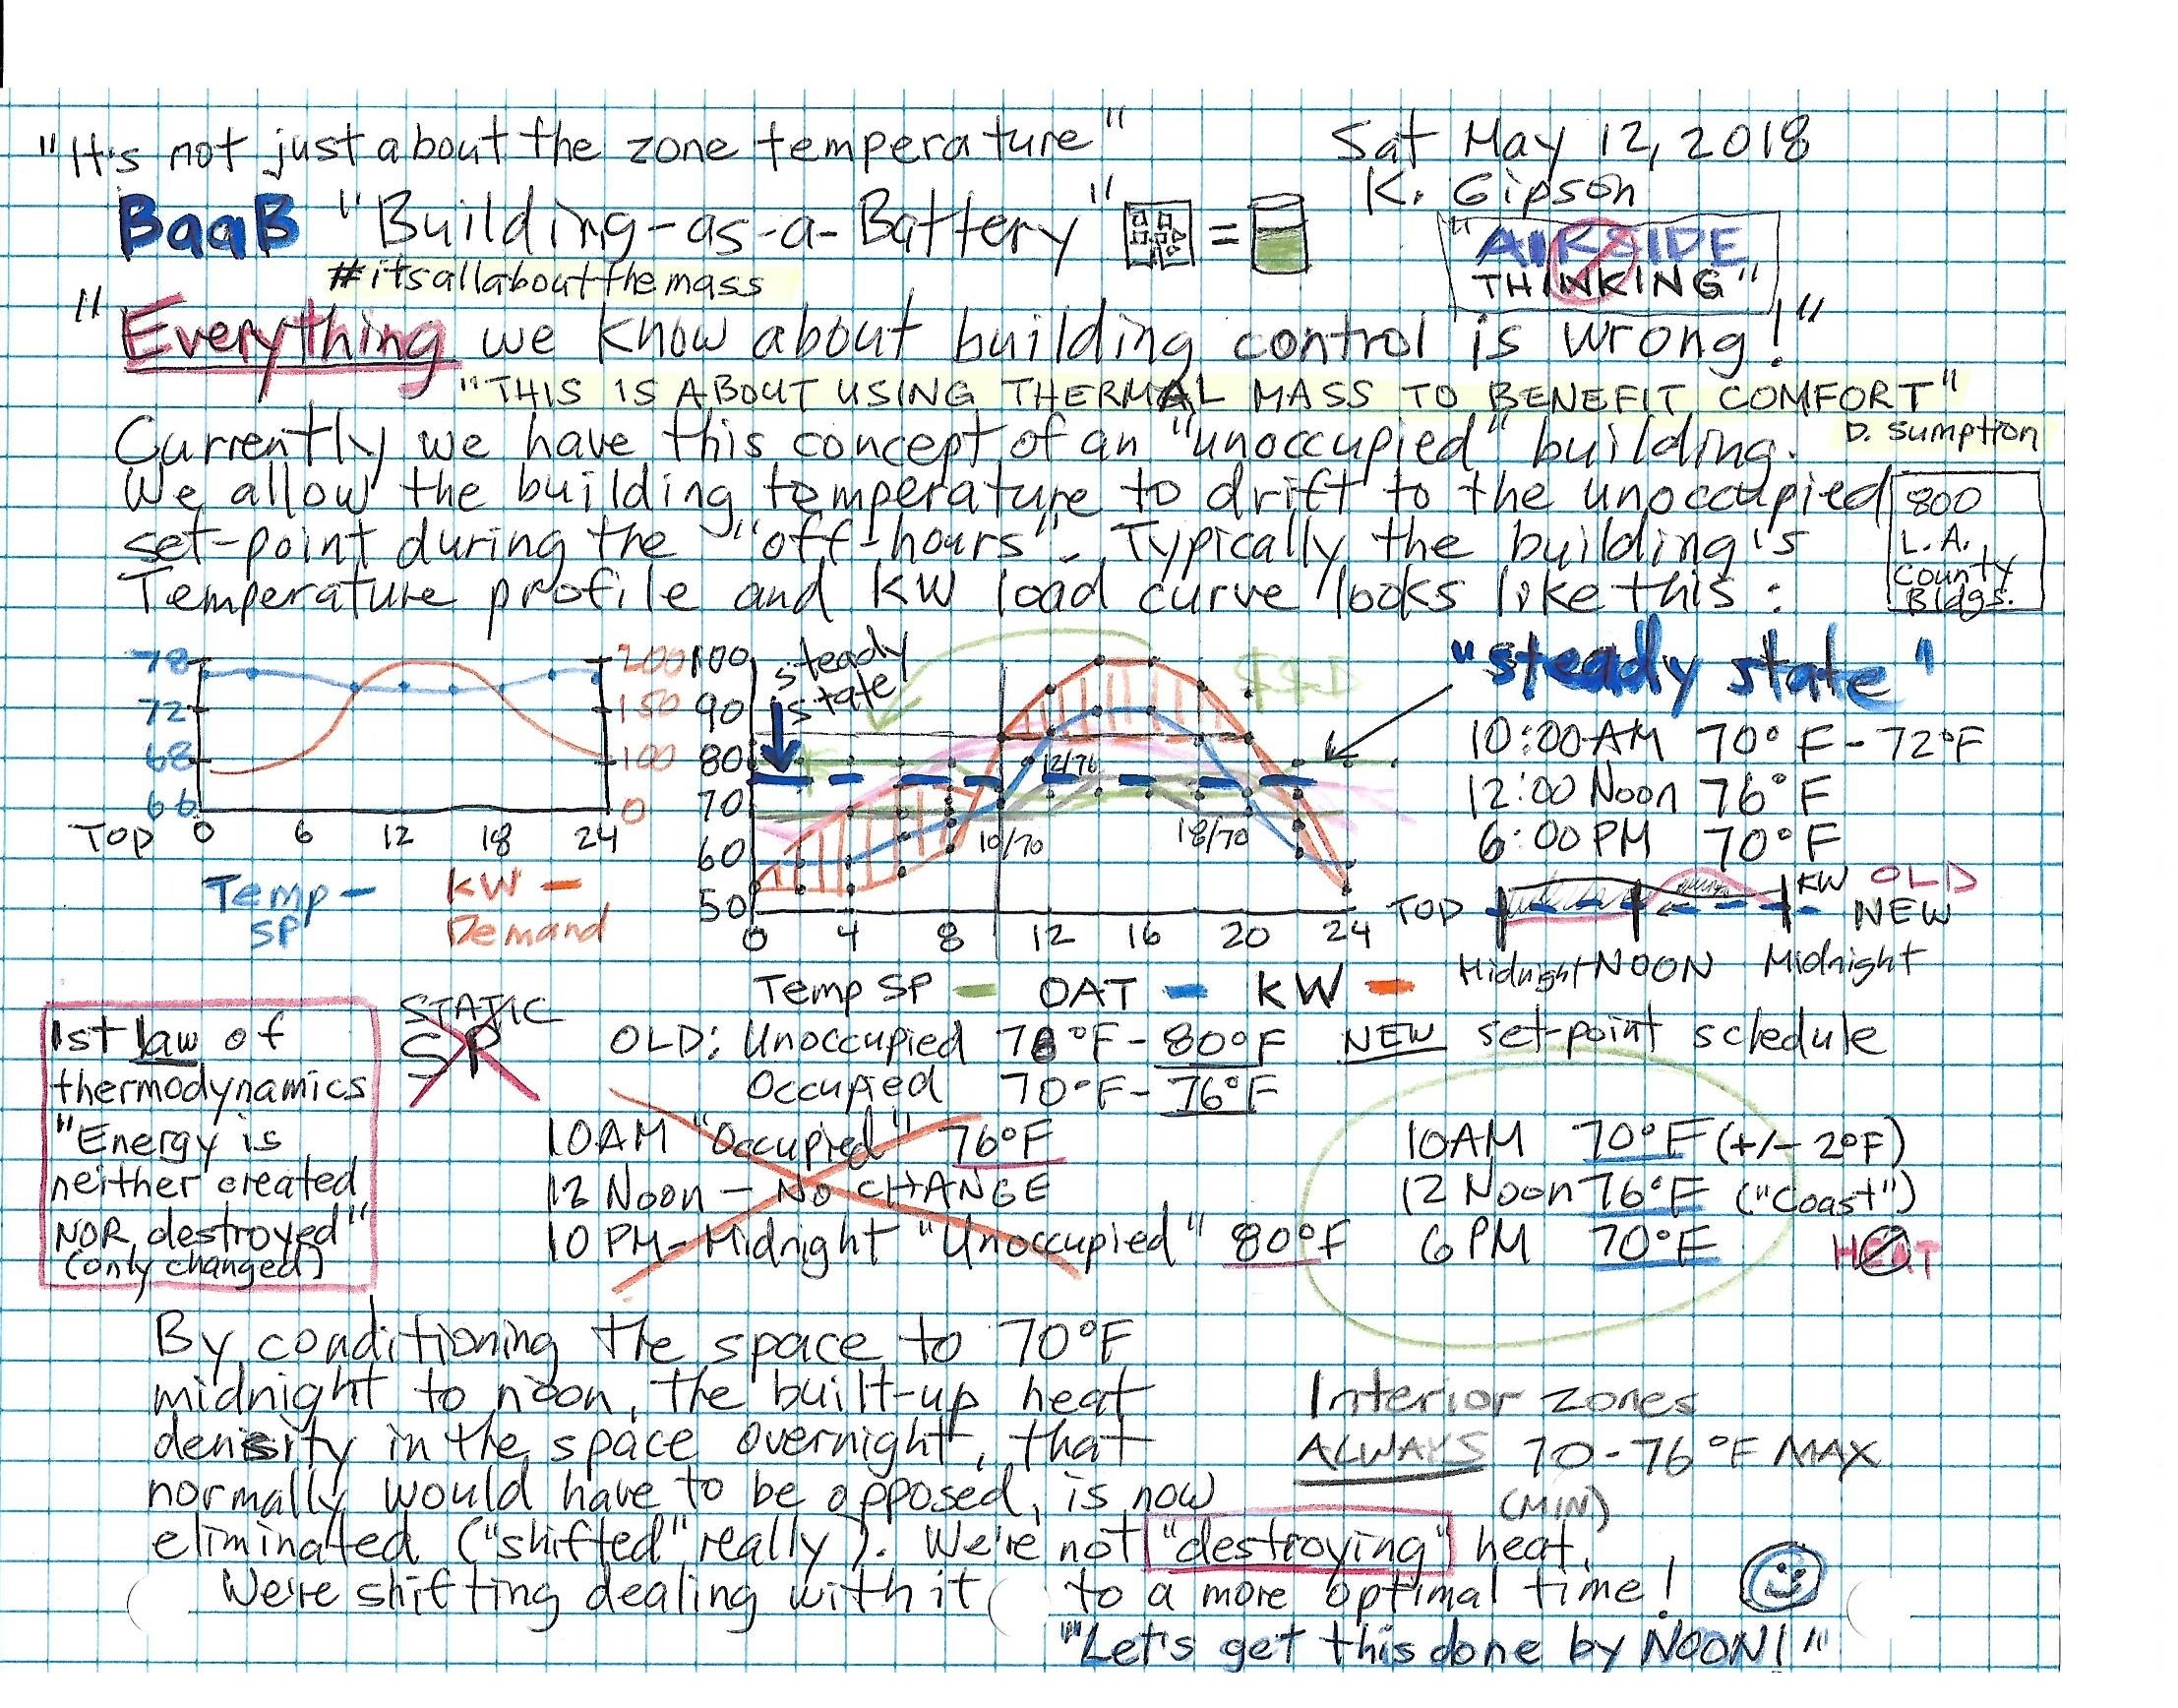 "It's not just about the zone temperature"
Sat May 12, 2018
K. Gipson
BaaB "Building-as-a-Battery" =
#itsallaboutthemass
"AIRSIDE
THINKING"
"Everything we know about building control is wrong!"
"THIS IS ABOUT USING THERMAL MASS TO BENEFIT COMFORT"
D. Sumption
Currently we have this concept of an "unoccupied" building.
We allow the building temperature to drift to the unoccupied
set-point during the "off-hours". Typically the building's
Temperature profile and KW load curve looks like this:
800
L.A.
County
Bldgs.
78
72
68
66
200
150
100
0
TOD 0 6 12 18 24
Temp SP
KW Demand
100
90
80
70
60
50
steady
state
$$$
12/76
10/70
18/70
0 4 8 12 16 20 24
Temp SP OAT KW
"steady state"
10:00 AM 70°F-72°F
12:00 Noon 76°F
6:00 PM 70°F
KW OLD
TOD NEW
Midnight NOON Midnight
1st law of
thermodynamics
"Energy is
neither created
NOR destroyed"
(only changed)
STATIC
SP
OLD: Unoccupied 78°F-80°F
Occupied 70°F-76°F
10AM "Occupied" 76°F
12 Noon - No CHANGE
10 PM-Midnight "Unoccupied" 80°F
NEW set-point schedule
10AM 70°F (+/- 2°F)
12 Noon 76°F ("Coast")
6 PM 70°F
HEAT
By conditioning the space to 70°F
midnight to noon, the built-up heat
density in the space overnight, that
normally would have to be opposed, is now
eliminated ("shifted" really). We're not "destroying" heat.
We're shifting dealing with it to a more optimal time!
Interior zones
ALWAYS 70-76°F MAX
(MIN)
"Let's get this done by NOON!"